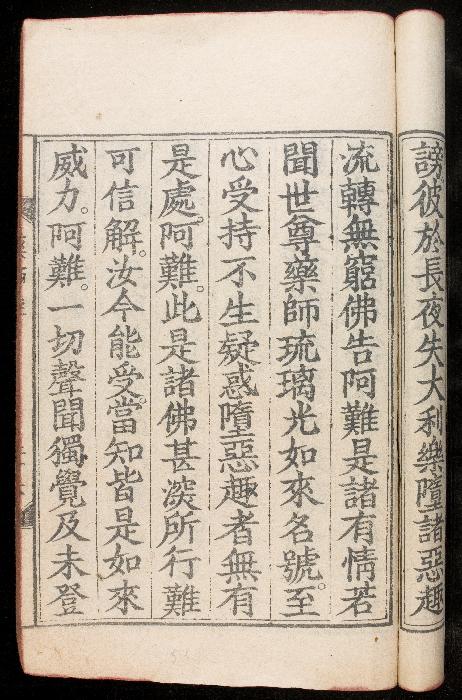 謗彼於長夜失大利樂墮諸惡趣
流轉無窮佛告阿難是諸有情若
聞世尊藥師琉璃光如來名號。至
心受持不生疑惑墮惡趣者無有
是處。阿難。此是諸佛甚深所行難
可信解。汝今能受。當知皆是如來
威力。阿難。一切聲聞獨覺及未登